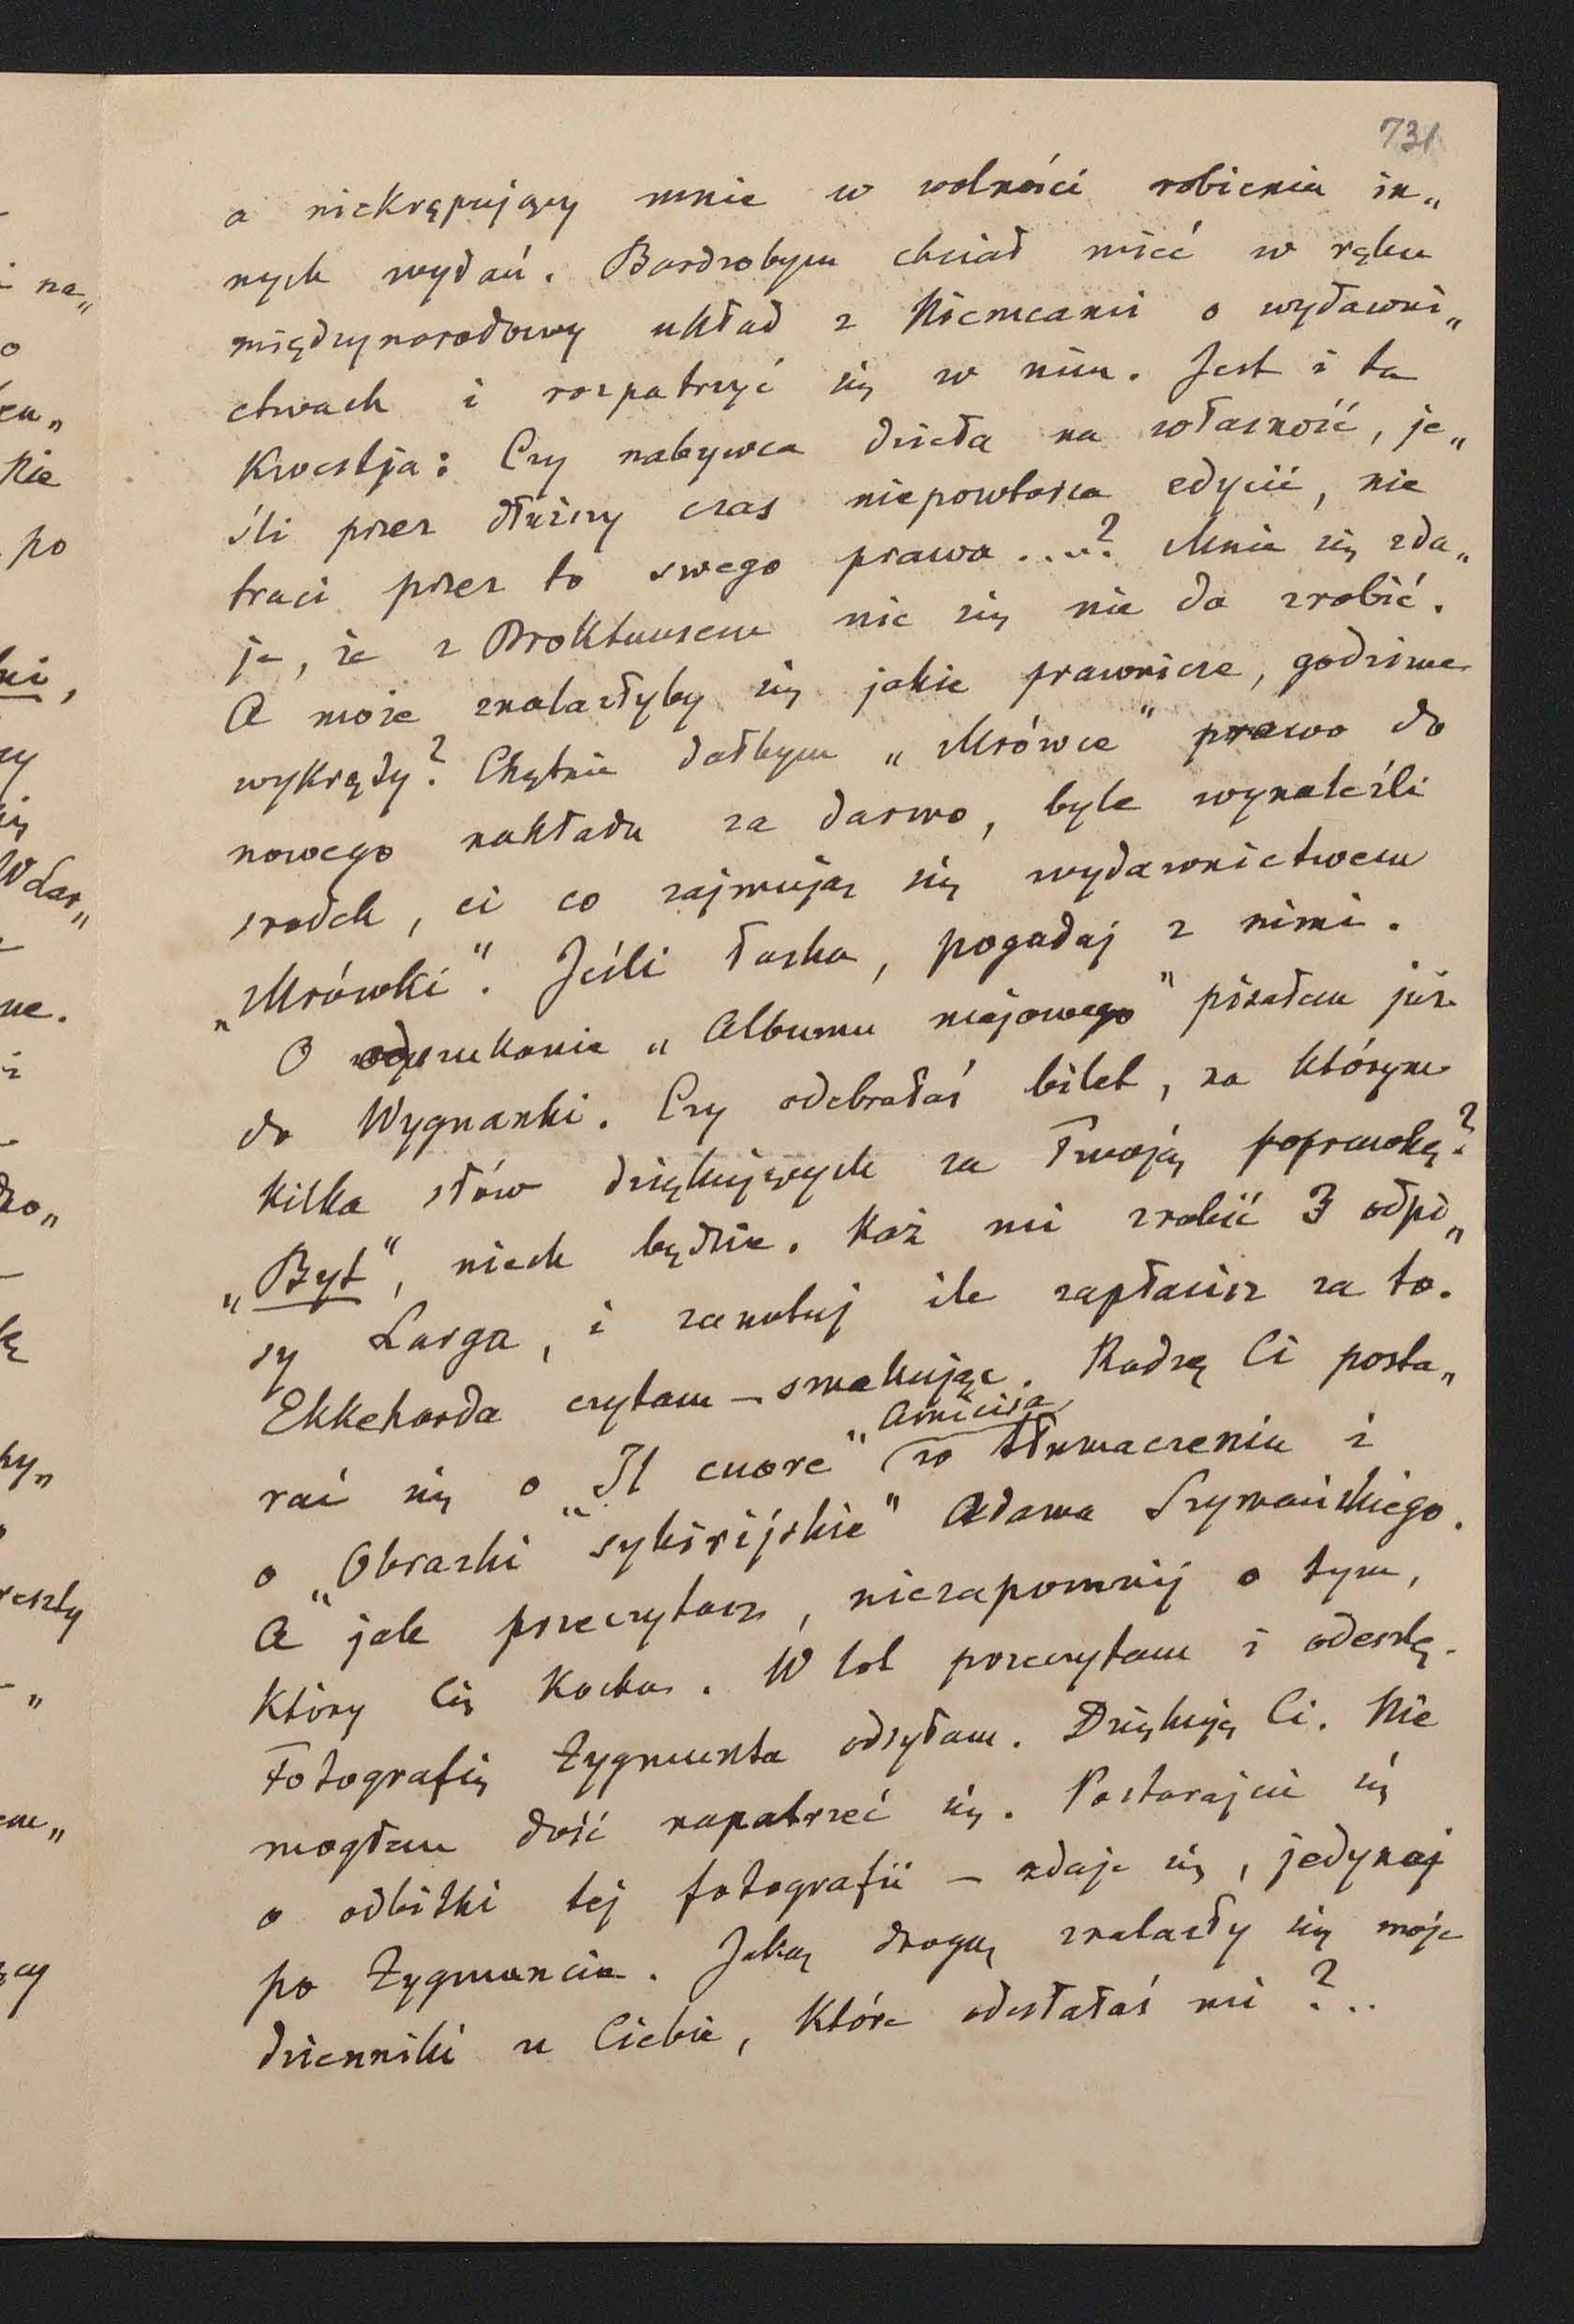 731
a niekrępujący mnie w wolności robienia in„
nych wydań. Bardzobym chciał mieć w ręku
międzynarodowy układ z Niemcami o wydawni„
ctwach i rozpatrzyć się w nim. Jest i ta
Kwestja: Czy nabywca dzieła na własność, je„
śli przez dłuższy czas niepowtarza edycii, nie
traci przez to swego prawa ....? Mnie się zda„
je, że z Brokhausem nic się nie da zrobić.
A może znalazłyby się jakie prawnicze, godziwe
wykręty? Chętnie dałbym „Mrówce" prawo do
nowego nakładu za darmo, byle wynaleźli
srodek, ci co zajmują się wydawnictwem
„Mrówki". Jeśli łaska, pogadaj z nimi.
O odszukanie „Albumu majowego" pisałem już
do Wygnanki. Czy odebrałaś bilet, na którym
kilka słów dziękujących za Twoją poprawkę?
„Byt", niech będzie. Każ mi zrobić 3 odpi„
sy Larga, i zanotuj ile zapłacisz za to.
Ekkeharda czytam – smakując. Radzę Ci posta„
rać się o „Il cuore" Amicisa (w tłumaczeniu i
o „Obrazki sybirijskie" Adama Szymańskiego.
A jak przeczytasz, niezapomnij o tym,
Który Cię Kocha. W lot przeczytam i odeszlę.
Fotografię Zygmunta odsyłam. Dziękuję Ci. Nie
mogłem dość napatrzeć się. Postarajcie się
o odbitki tej fotografii – zdaje się, jedynej
po Zygmuncie. Jaką drogą znalazły się moje
dzienniki u Ciebie, które odesłałaś mi?..
i na„
o
Nie
po
ki,
ne.
i